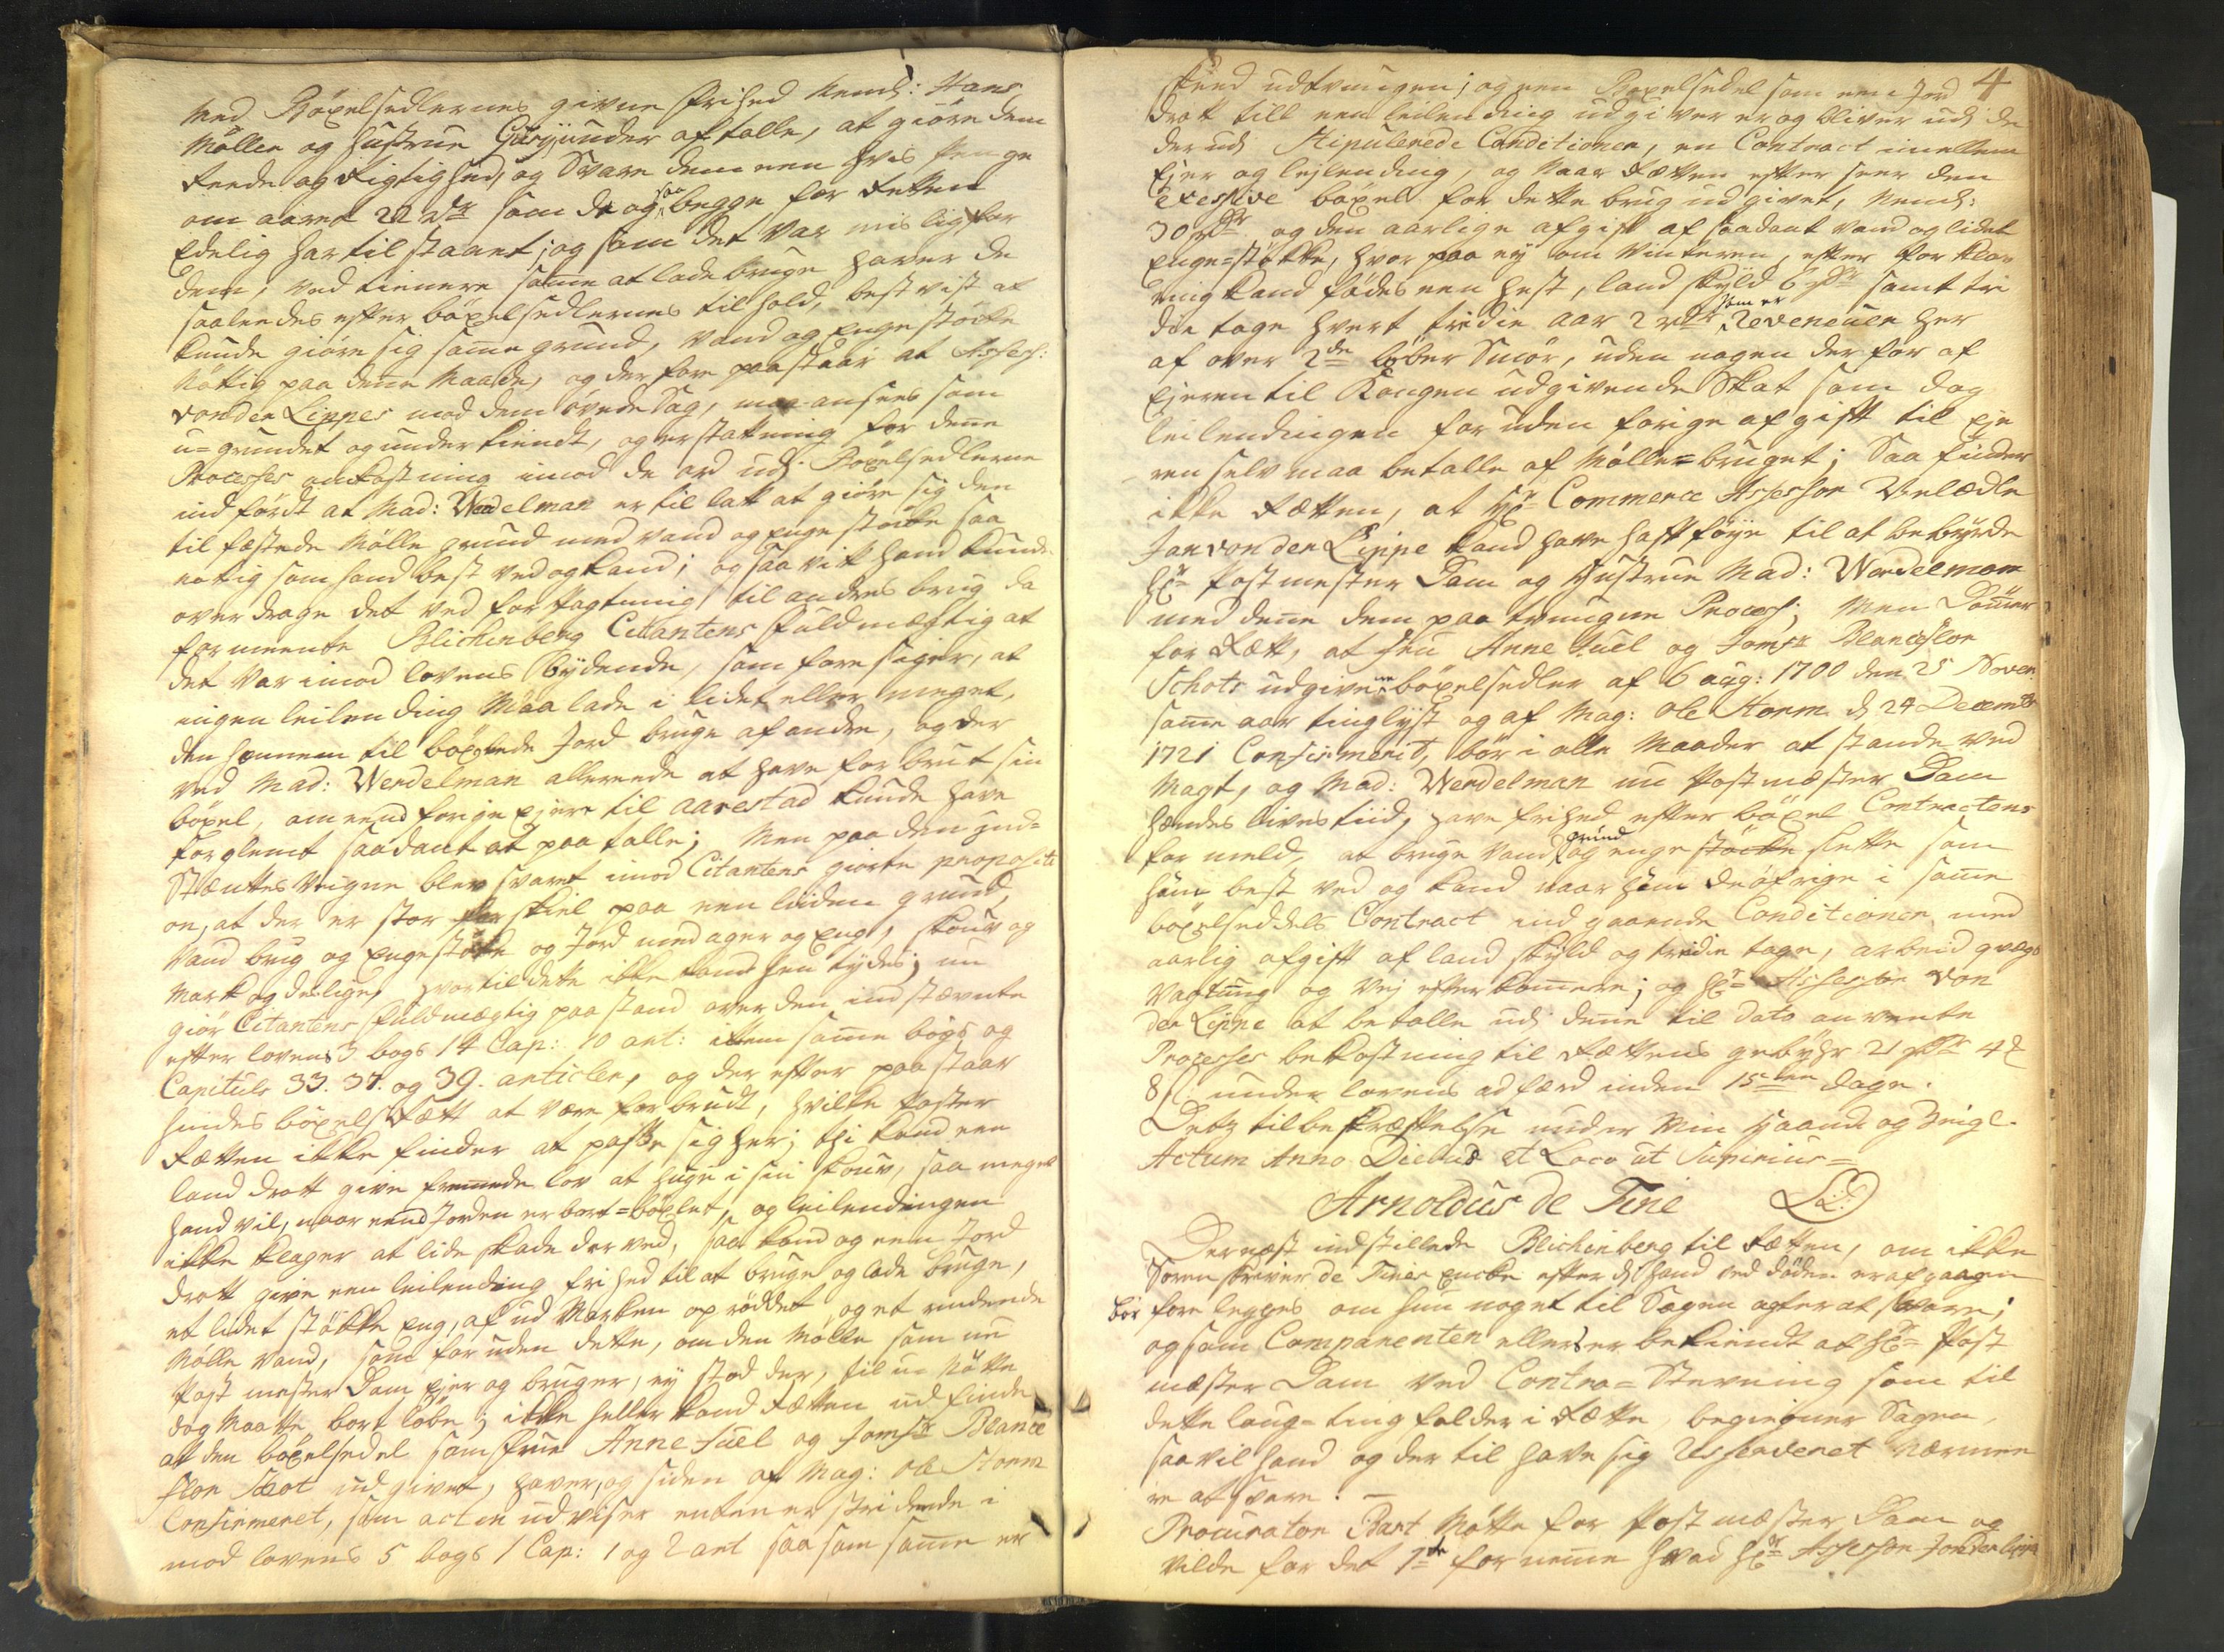 Med Böxelsedlernes givne frihed nemb: Hans
Mölle og hustrue Guri, under aftalle, at giöre dem
Reede og Rigtighed, og Svare dem een hves penge
om aaret 22 rdr som de og saa begge for Retten
Edelig har tilstaaet; og som det var mislig for
dem, ved tienere samme at lade bruge haver de
saaleedes efter böxelsedlernes tilhold, best vist at
kunde giöre sig samme grund, vand og Enge støcke
Nöttig paa denne Maade, og derfore paastaar at Assess:
von der Lippes mod dem øvede Sag, maa ansees som
u-grundet og underkiendt, og erstatning for denne
Processes omkostning imod de ord udj Böxelsedlerne
indfördt at Mad: Wendelman er tillatt at giöre sig den
til fæstede Mölle grund med vand og Enge støcke saa
nøttig som hand best ved og kand; og saa vitt hand kunde
overdrage det ved forpagtning til andres brug da
formeente Blichenberg Citantens fuldmægtig at
det var imod lovens bydende, som foresiger, at
ingen leilending Maa lade i lidet eller meget,
den hannem til böxlede Jord bruge af andre, og der
ved Mad: Wendelman allereede at have forbrut sin
böxel, om eend forige Ejere til Aarestad kunde have
forglemt saadant at paatalle; Men paa den Ind-
Stæntes veigne blev svaret imod Citantens giorte propositi
on, at der er stor forskiel paa een liden grund,
Vand brug og Enge støcke og Jord med ager og Eng, skouv og
Mark og deslige, hvortil dette icke kand hentydes; nu
giör Citantens fuldmægtig paastand over den indstævnte
efter lovens 3 bogs 14 Cap: 10 art: ittem samme bogs og
Capituls 33. 37. og 39. articler, og der efter paastaar
hendes böxels Rætt at være forbrudt, hvilke poster
Rætten ikke finder at passe sig her; thi kand een
land drott give fremmede lov at huge i sin skouv, saa meget
hand vil, naar eend Jorden er bort-böxlet, og leilendingen
ikke klager at lide skade derved, saa kand og een Jord
drott give een leilending frihed til at bruge og lade bruge,
et lidet støkke Eng, af ud Marken oprøddet, og et rindende
Mölle vand, som foruden dette, om den Mölle som nu
Postmester Dam Ejer og bruger, ey stod der, til u-nötte
dog Maatte bort löbe; ikke heller kand Rætten udfinde
at den böxelsedel som frue Anne Juel og Jomfr Blance
flor Scot udgivet haver, og siden af Mag: Ole Storm
Confirmeret, som acten udviser enten er stridende i
mod lovens 5 bogs 1 Cap: 1 og 2 art saasom samme er
4
frued udtvungen; og een Böxelsedel som een Jord
drott till een leilending udgiver er og bliver udj de
derudj Stipulerede Conditioner, en Contract imellem
Ejer og leilending, og Naar Rætten efter seer den
Excessive böxel for dette brug udgivet, nemb:
30 rdr og den aarlige afgift af saadant vand og lidet
Enge-støkke, hvor paa ey om Vinteren, efter forklar
ing kand fødes een hest, land skyld 6 rdr samt tri
die tage hvert tridie aar 2 rdr, som er Reveneuer her
af over 2de löber Smör, uden nogen der for af
Ejeren til Kongen udgivende Skat som dog
leilendingen foruden forige afgift til Eje
ren selv maa betalle af Mölle-bruget; Saa finder
ikke Rætten, at Hr Commerce Assessor Velædle
Jan von der Lippe kand have haft föye til at bebyrde
Hr Postmester Dam og Hustrue Mad: Wendelman
med denne dem paatvungne Process; Men Dömmer
for Rætt, at frue Anne Juel og Jomfr Blanceflor
Schots udgivene böxelsedler af 6 aug: 1700 den 25 Novem
samme aar tinglyst og af Mag: Ole Storm d 24 Decembr
1721 Confirmerit, bör i alle Maader at stande ved
Magt, og Mad: Wendelman nu Postmester Dam
hendes lives tiid, have frihed efter böxel Contractens
formeld, at bruge Vand grund og enge støcke slette som
ham best ved og kand naar ham de öfrige i samme
böxelseddels Contract indgaaende Conditioner med
aarlig afgift af land skyld og tridie tage, arbeid
Vagtning og Vej efterkommere; og Hr Assessor von
der Lippe at betalle udj denne til dato anvente
Processes bekostning til Rættens gebyhr 21 rdr 4
8 under lovens adfærd inden 15ten dage.
Detz til bekræftelse under Min haand og Seigl.
Actum Anno Diebus et Loco ut Superius =
Arnoldus de Fine LS
Dernæst indstillede Blichenberg til Rætten, om ikke
Sorenskriver de Fines Encke efter di hand ved döden er afgaaen
bör forelegges om hun noget til Sagen agter at svare;
og som Comparenten ellers er bekiendt at Hr Post
mæster Dam ved Contra-Stevning som til
dette laug-ting falder i Rætte, begiegner Sagen,
saa vil hand og der til have sig Reserveret nærmer
re at svare. —
Procurator Bart Mötte for Postmæster Dam og
vilde for det 1te fornemme hvad Hr Assessor Jonderlippe